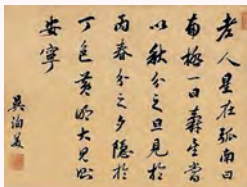 老人星在弧南曰
南極一曰壽星常
以秋分之旦見於
丙春分之夕隱於
丁色黃明大見則
安寧
吳